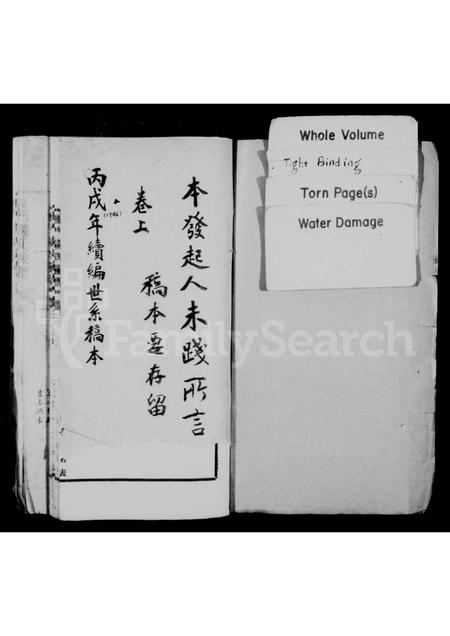 本發起人未踐所言
稿本要存留
卷上
丙戌年續編世系稿本
(1946)
Whole Volume
Tight Binding
Torn Page(s)
Water Damage
FamilySearch